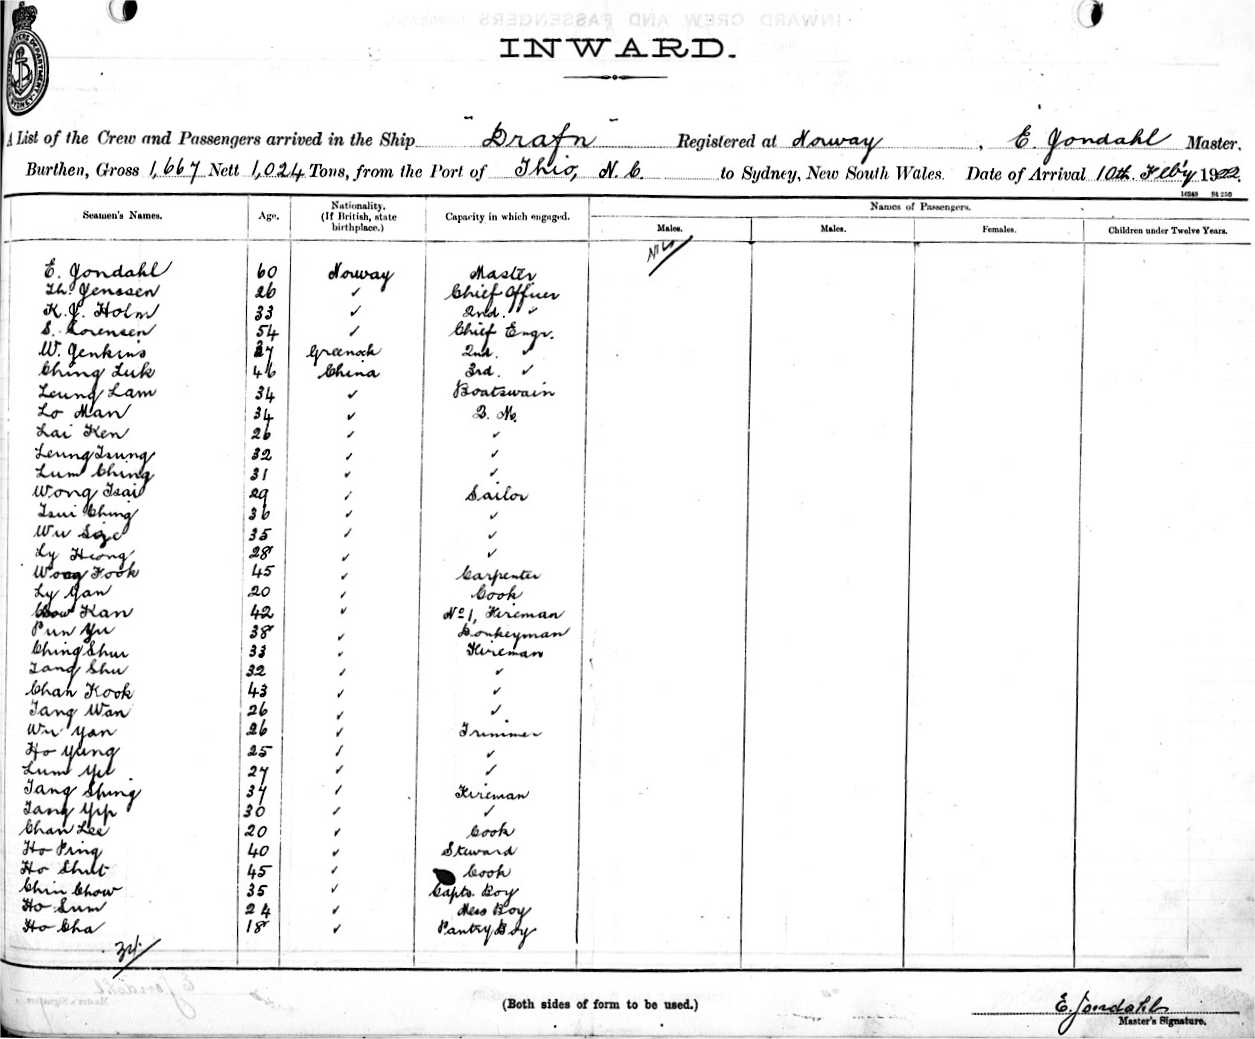 INWARD.
A List of the Crew and Passengers arrived in the Ship "Drafn" Registered at Norway, E. Jondahl Master,
Burthen, Gross 1,667 Nett 1,024 Tons, from the Port of Thio, N. C. to Sydney, New South Wales. Date of Arrival 10th Feb'y 1922.
Seamen's Names. Age. Nationality. (If British, state birthplace.) Capacity in which engaged. Names of Passengers.
Males. Males. Females. Children under Twelve Years.
Nil
E. Jondahl 60 Norway Master
Th. Jenssen 26 ✓ Chief Officer
K. J. Holm 33 ✓ 2nd. ✓
S. Sorensen 54 ✓ Chief Engr.
W. Jenkins 27 Greenock 2nd. ✓
Ching Luk 46 China 3rd. ✓
Leung Lam 34 ✓ Boatswain
Lo Man 34 ✓ Q. M.
Lai Ken 26 ✓ ✓
Leung Tsung 32 ✓ ✓
Lum Ching 31 ✓ ✓
Wong Tsai 29 ✓ Sailor
Tsui Ching 36 ✓ ✓
Wu Sze 35 ✓ ✓
Ly Heong 28 ✓ ✓
Wong Fook 45 ✓ Carpenter
Ly Gan 20 ✓ Cook
Chow Kan 42 ✓ No 1, Fireman
Pun Yu 38 ✓ Donkeyman
Ching Shui 33 ✓ Fireman
Tang Shu 32 ✓ ✓
Chan Kook 43 ✓ ✓
Tang Wan 26 ✓ ✓
Wu Yan 26 ✓ Trimmer
Ho Yung 25 ✓ ✓
Lum Yee 27 ✓ ✓
Tang Shing 37 ✓ Fireman
Tang Yip 30 ✓ ✓
Chan Lee 20 ✓ Cook
Ho Ping 40 ✓ Steward
Ho Shut 45 ✓ Cook
Chin Chow 35 ✓ Capts. Boy
Ho Sum 24 ✓ Mess Boy
Ho Cha 18 ✓ Pantry Boy
34
(Both sides of form to be used.)
E. Jondahl
Master's Signature.